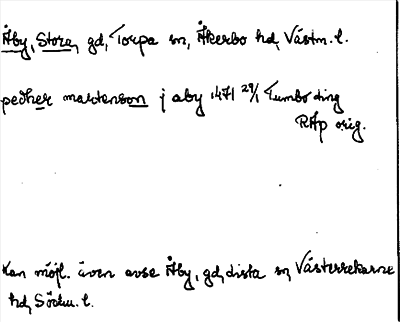 Åby, Stora, gd, Torpa sn, Åkerbo hd, Västm. l.
pedher martenson j aby 1471 29/1 Tumbo ding
RAp orig.
Kan möjl. även avse Åby, gd, dista sn, Västerrekarne
hd, Södm. l.